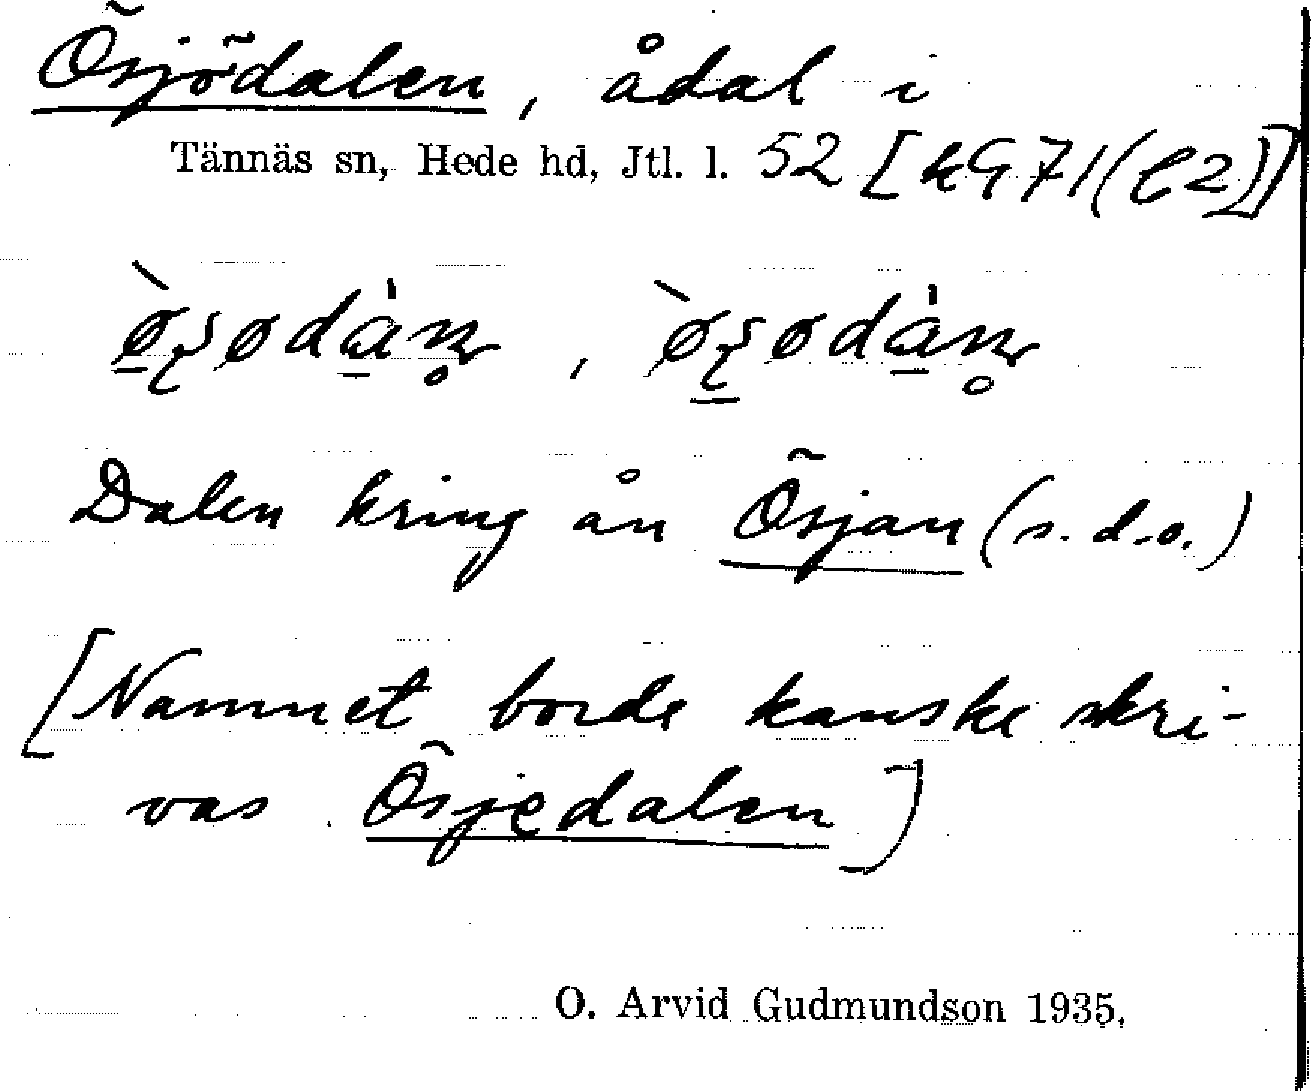 Ösjödalen, ådal i
Tännäs sn, Hede hd, Jtl. l. 52 [kG71(C2)]
Dalen kring ån Ösjan (s. d. o.)
[Namnet borde kanske skri-
vas Ösjedalen]
O. Arvid Gudmundson 1935.